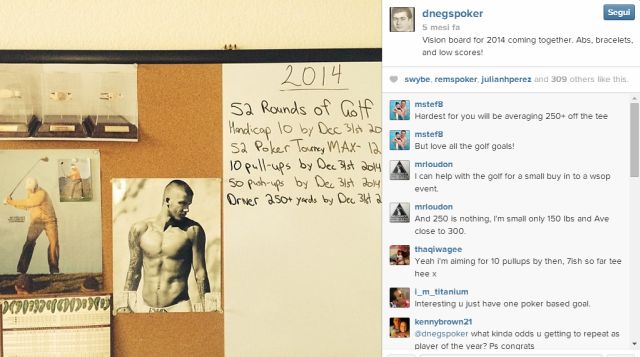 2014
52 Rounds of Golf
Handicap 10 by Dec 31st 20
52 Poker Tourney MAX- 12
10 pull-ups by Dec 31st 2014
50 push-ups by Dec 31st 2014
Driver 250+ yards by Dec 31st 2
dnegspoker
Segui
5 mesi fa
Vision board for 2014 coming together. Abs, bracelets,
and low scores!
swybe, remspoker, julianhperez and 309 others like this.
mstef8
Hardest for you will be averaging 250+ off the tee
mstef8
But love all the golf goals!
mrloudon
I can help with the golf for a small buy in to a wsop
event.
mrloudon
And 250 is nothing, I'm small only 150 lbs and Ave
close to 300.
thaqiwagee
Yeah i'm aiming for 10 pullups by then, 7ish so far tee
hee x
i_m_titanium
Interesting u just have one poker based goal.
kennybrown21
@dnegspoker what kinda odds u getting to repeat as
player of the year? Ps congrats